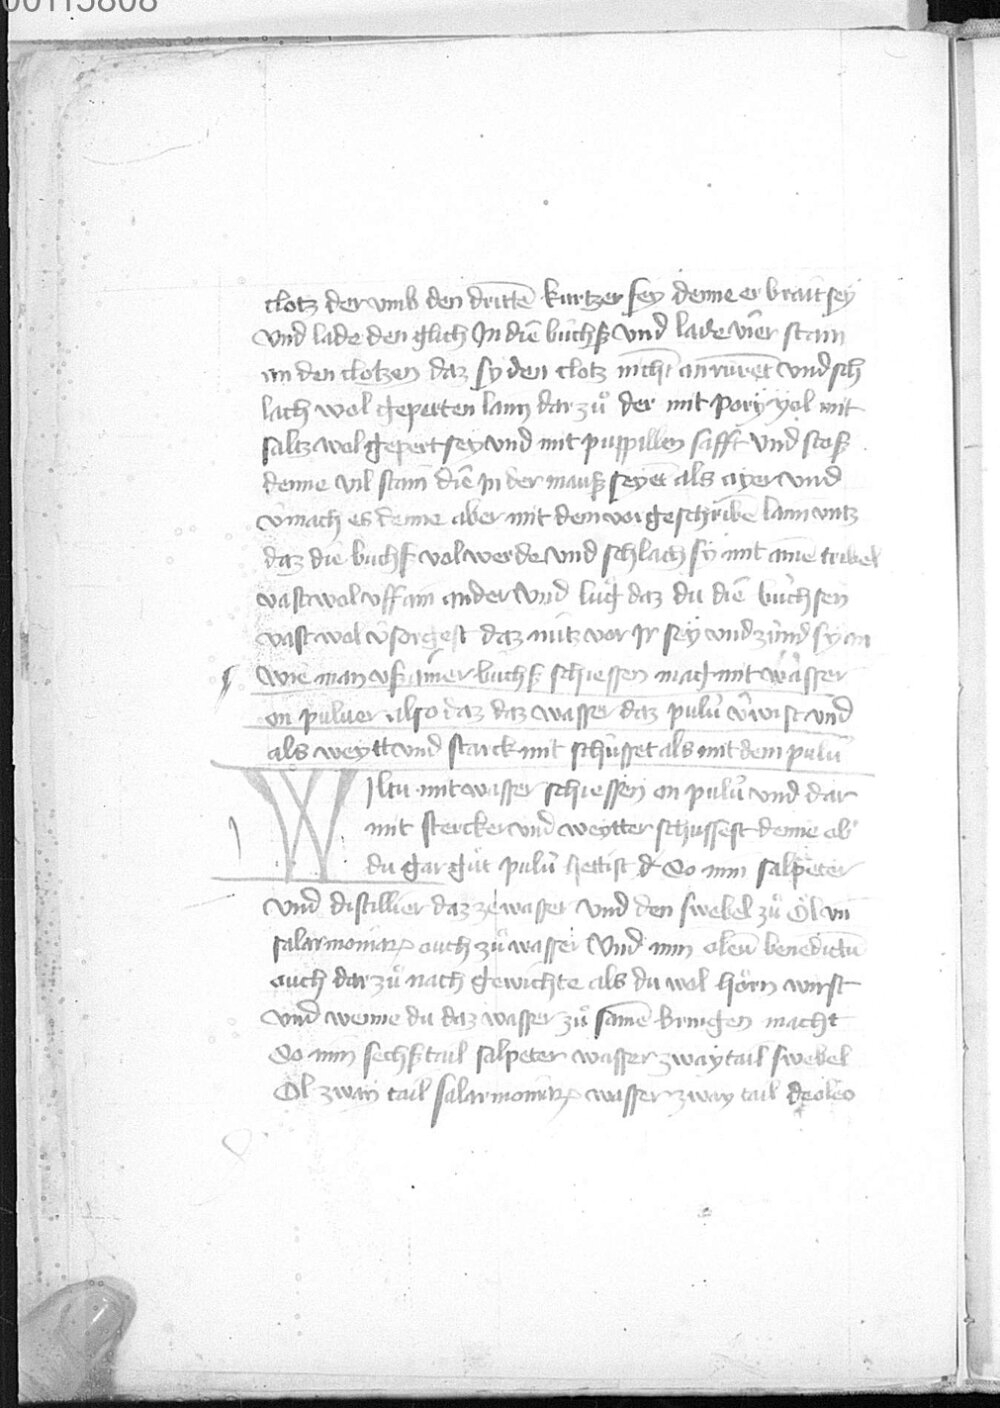 00115808
clotz der vmb den drittē kurtzer sey denne er brait sey
vnd lade den glich In die büchß vnd lade vier stain
an den clotzen daz sy den clotz nicht anrürēt vnd sch
lach wol geperten laim dar zů der mit pory yol mit
saltz wol gepert sey vnd mit puppillen safft vnd stoß
denne vil stain die In der mauß seyen als ayer vnd
v̄mach es denne aber mit dem vorgeschribē laim vntz
daz die buchß vol werde vnd schlach sy mit aine tribel
vast wol vff ain ander vnd lůg daz du die büchsen
vast wol v̄sorgest daz nutz vor Ir sey vnd zünd sy an
wie man vß ainer büchß schiessen mag mit wasser
on puluer also daz daz wasser daz pulū v̄wist vnd
als weytt vnd starck mit schüsset als mit dem pulū
Wiltu mit wasser schiessen on pulū vnd dar
mit stercker vnd weytter schussest denne ob
du gar gůt pulū hettist So nim salpeter
vnd distillier daz ze wasser vnd den swebel zů öl vn̄
salarmoniacꝫ ouch zů wasser vnd nim oleū benedictū
ouch dar zů nach gewichte als du wol hörn wirst
vnd wenne du daz wasser zů samē bringen macht
So nim sechß tail salpeter wasser zway tail swebel
Öl zway tail salarmoniacꝫ wasser zway tail de oleo